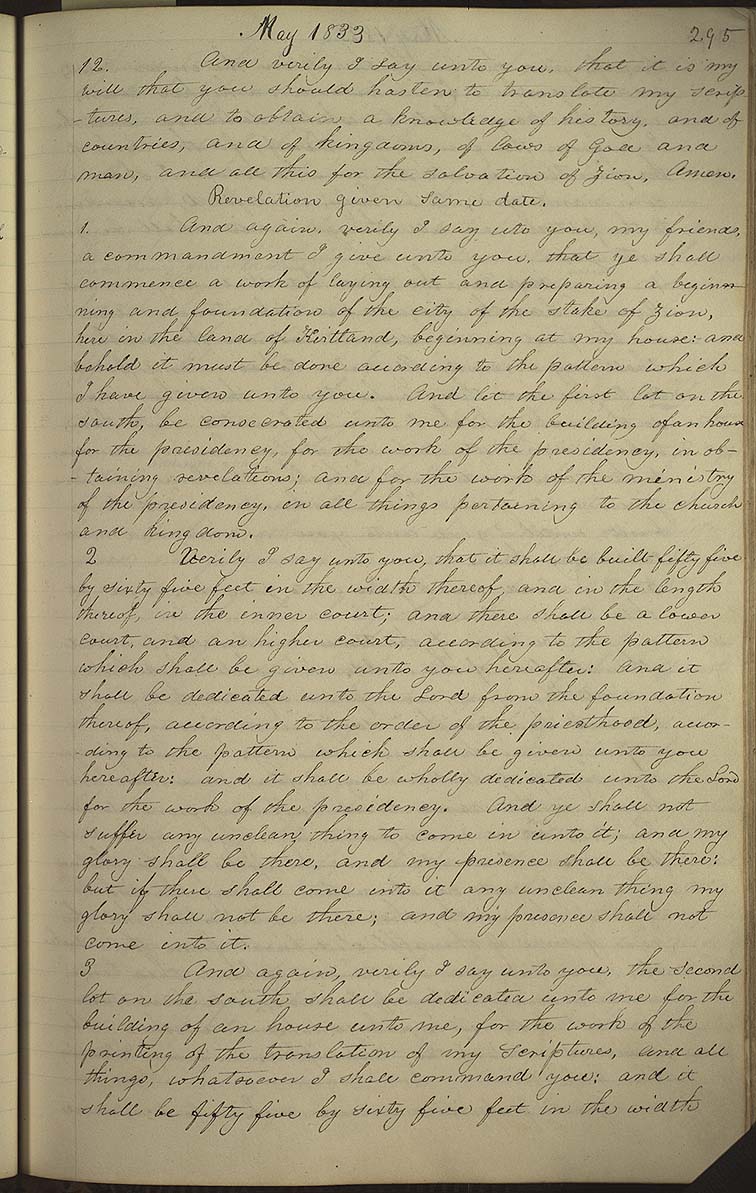 May 1833 295
12. And verily I say unto you, that it is my
will that you should hasten to translate my scrip
-tures, and to obtain a knowledge of history, and of
countries, and of kingdoms, of laws of God and
man, and all this for the salvation of Zion, Amen.
Revelation given same date.
1. And again, verily I say uto you, my friends,
a commandment I give unto you, that ye shall
commence a work of laying out and preparing a beginn-
ning and foundation of the city of the stake of Zion,
here in the land of Kirtland, beginning at my house: and
behold it must be done according to the pattern which
I have given unto you. And let the first lot on the
south, be consecrated unto me for the building of an house
for the presidency, for the work of the presidency, in ob-
-taining revelations; and for the work of the ministry
of the presidency, in all things pertaining to the church
and kingdom.
2 Verily I say unto you, that it shall be built fifty five
by sixty five feet in the width thereof, and in the length
thereof, in the inner court; and there shall be a lower
court, and an higher court, according to the pattern
which shall be given unto you hereafter: and it
shall be dedicated unto the Lord from the foundation
thereof, according to the order of the priesthood, accor-
-ding to the pattern which shall be given unto you
hereafter: and it shall be wholly dedicated unto the Lord
for the work of the presidency. And ye shall not
suffer any unclean thing to come in unto it; and my
glory shall be there, and my presence shall be there:
but if there shall come into it any unclean thing my
glory shall not be there; and my presence shall not
come into it.
3 And again, verily I say unto you, the second
lot on the south shall be dedicated unto me for the
building of an house unto me, for the work of the
printing of the translation of my scriptures, and all
things, whatsoever I shall command you: and it
shall be fifty five by sixty five feet in the width